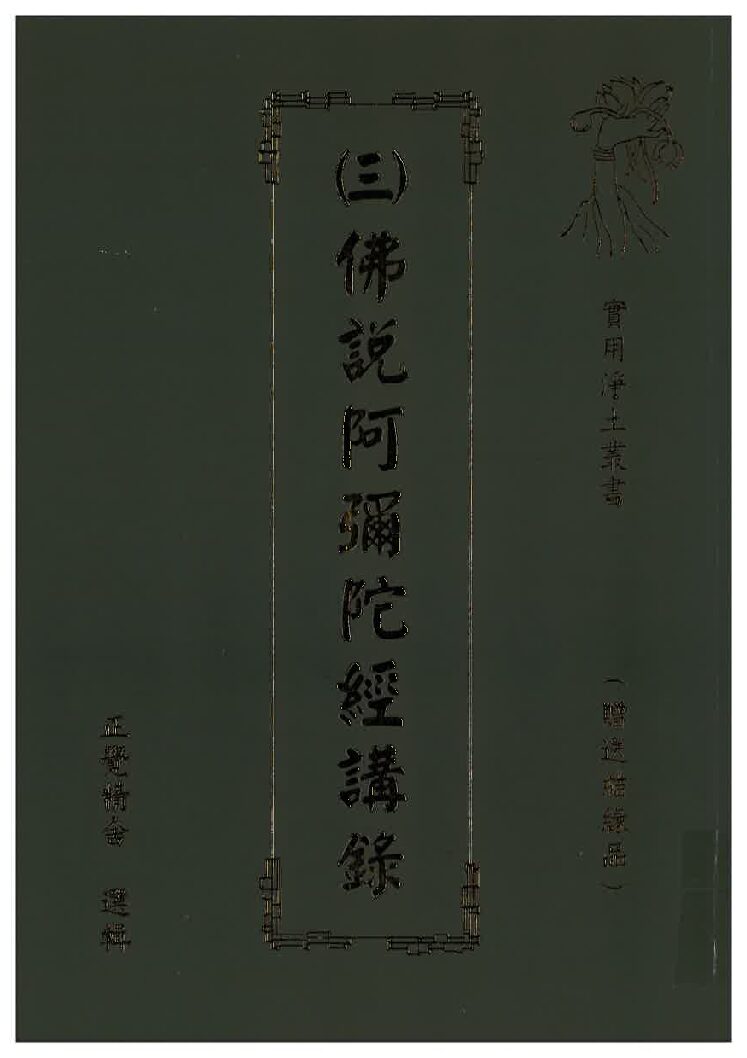 實用淨土叢書
（贈送結緣品）
㈢佛說阿彌陀經講錄
正覺精舍　選輯